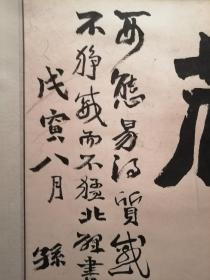 西態易得質威
不猙威而不猛北魏書
戊寅八月
孫